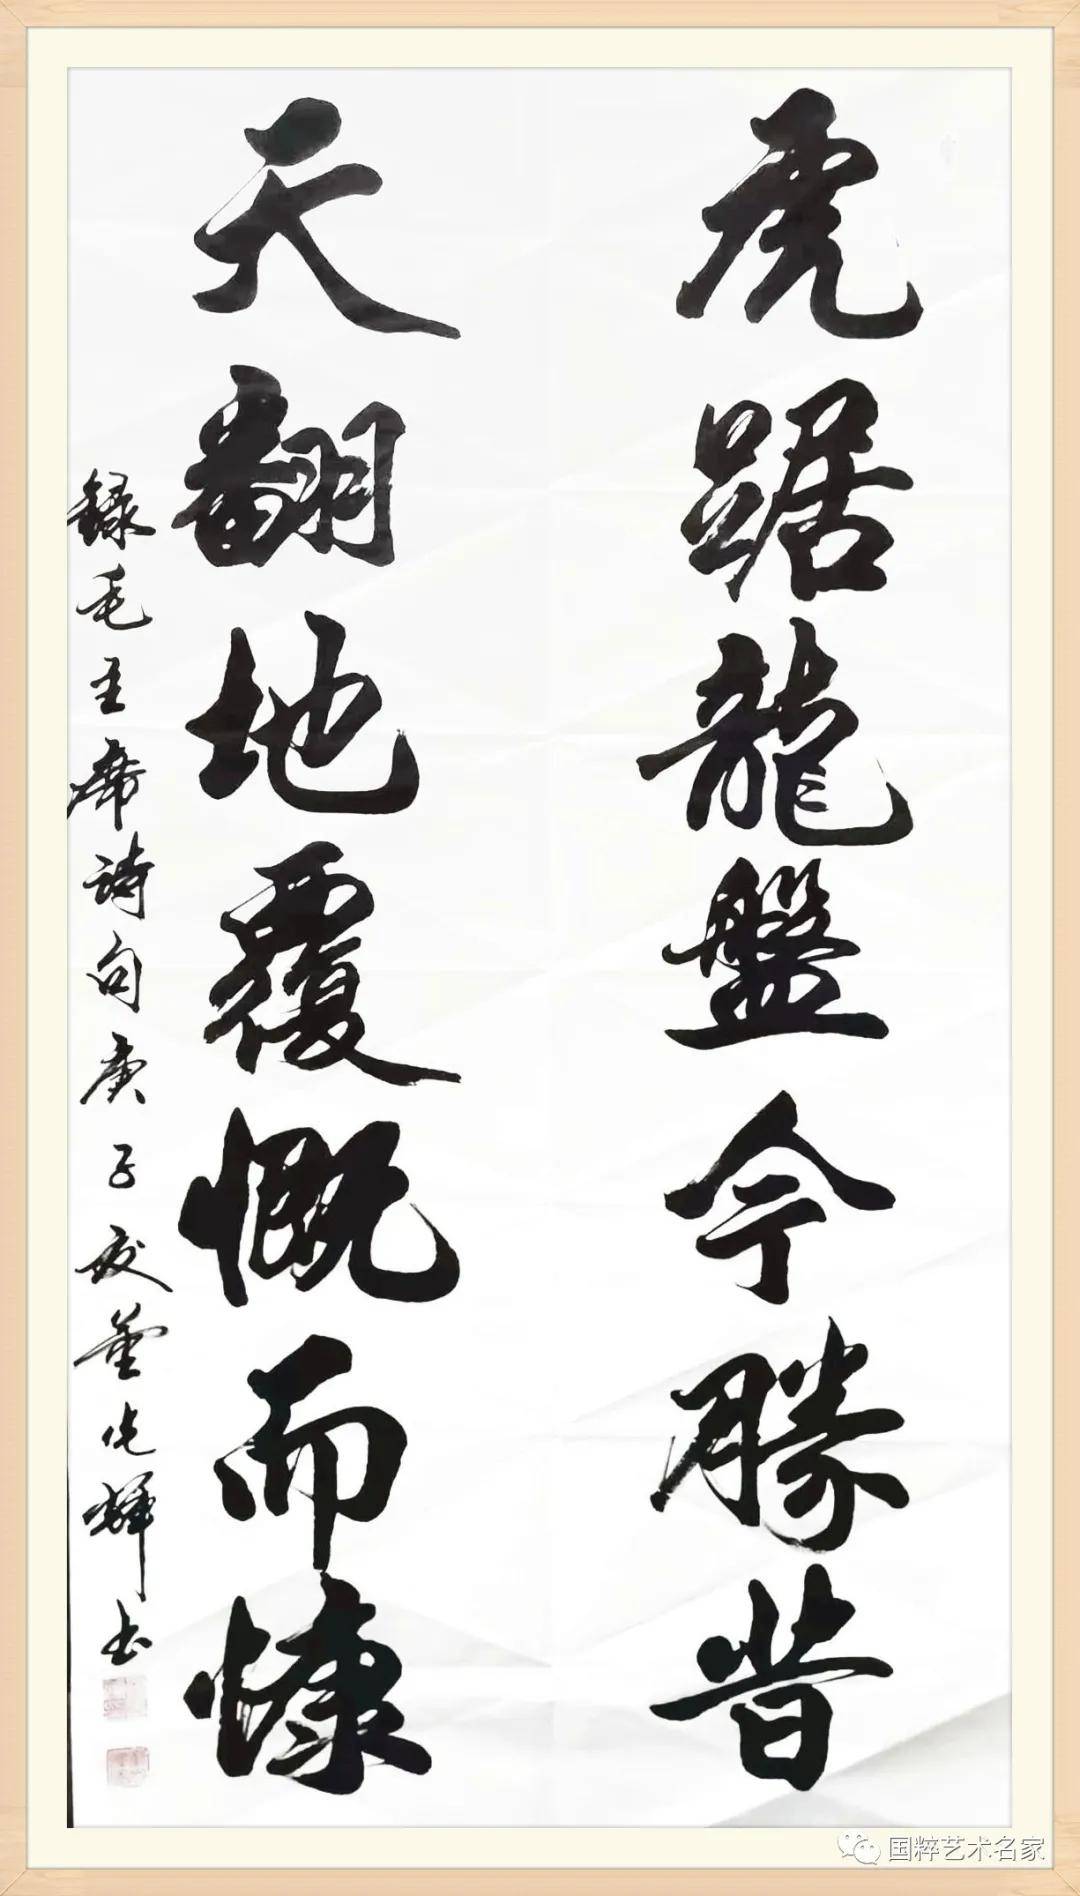 虎踞龍盤今勝昔
天翻地覆慨而慷
録毛主席詩句庚子夏董光輝书
国粹艺术名家